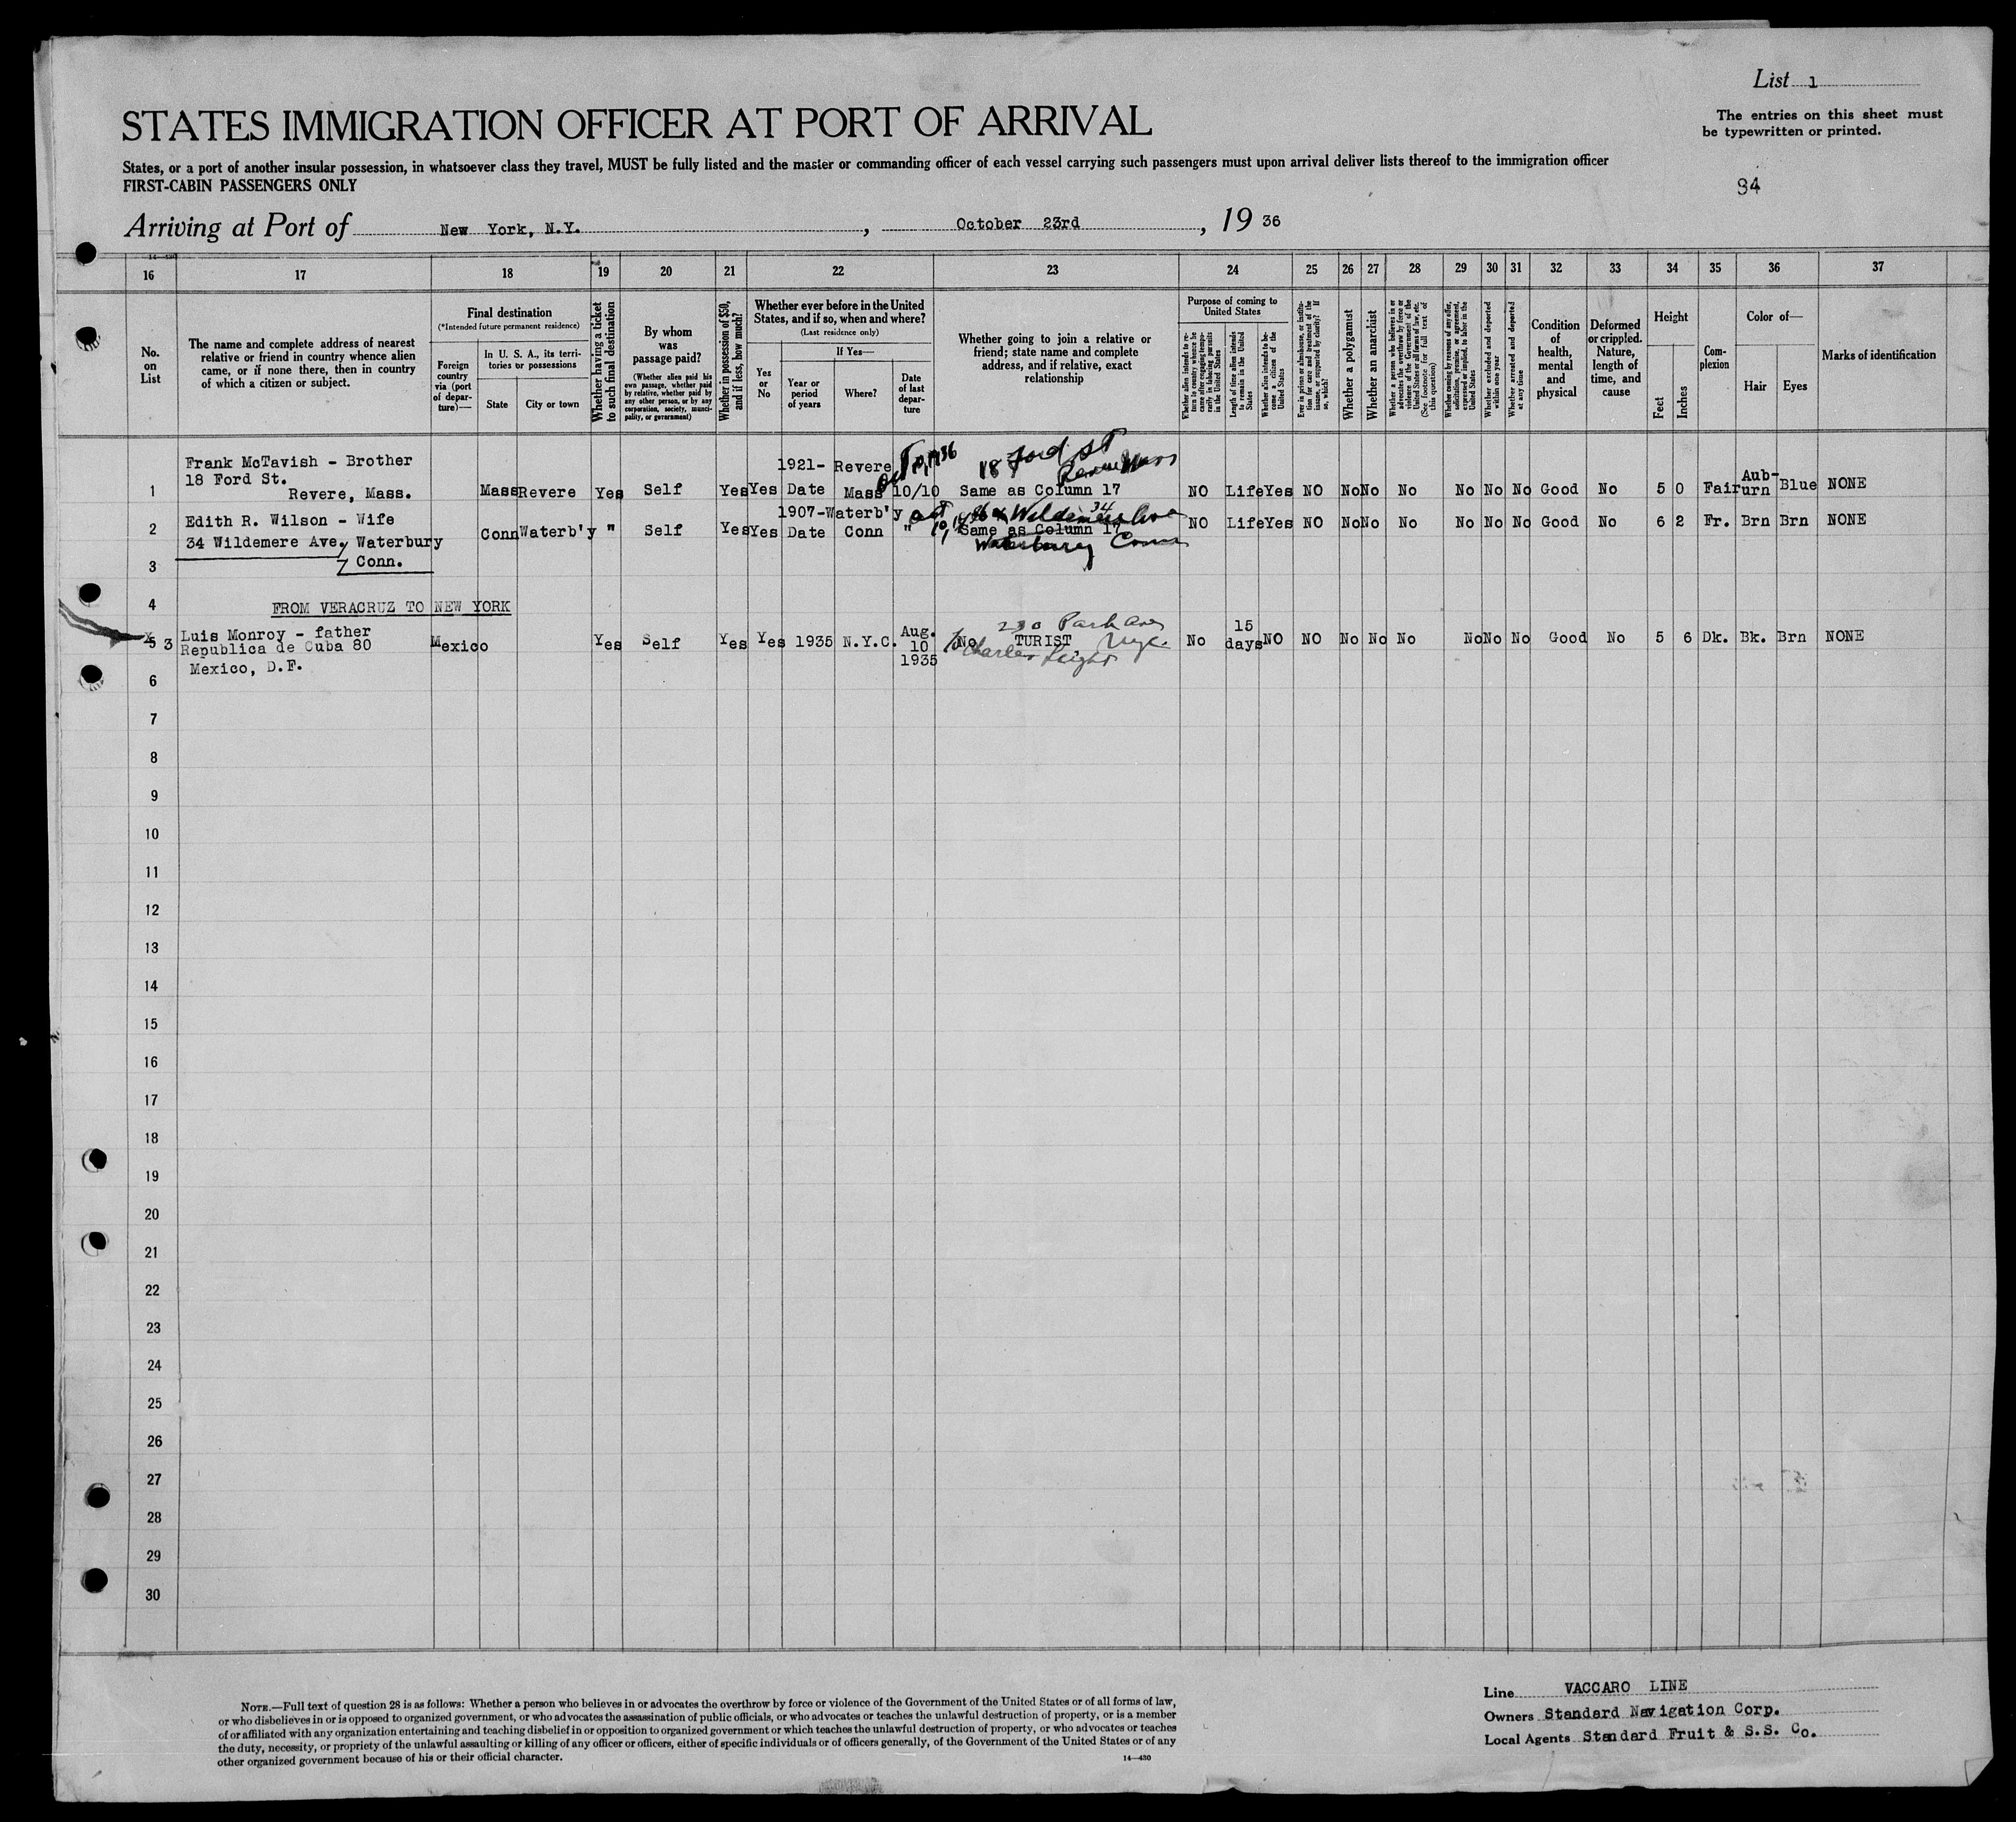 List 1
The entries on this sheet must
be typewritten or printed.
STATES IMMIGRATION OFFICER AT PORT OF ARRIVAL
States, or a port of another insular possession, in whatsoever class they travel, MUST be fully listed and the master or commanding officer of each vessel carrying such passengers must upon arrival deliver lists thereof to the immigration officer
FIRST-CABIN PASSENGERS ONLY
94
Arriving at Port of New York, N.Y., October 23rd, 19 36
16 17 18 19 20 21 22 23 24 25 26 27 28 29 30 31 32 33 34 35 36 37
No.
on
List
The name and complete address of nearest
relative or friend in country whence alien
came, or if none there, then in country
of which a citizen or subject.
Final destination
(*Intended future permanent residence)
Foreign
country
via (port
of depar-
ture)—
In U. S. A., its terri-
tories or possessions
State
City or town
Whether having a ticket
to such final destination
By whom
was
passage paid?
(Whether alien paid his
own passage, whether paid
by relative, whether paid by
any other person, or by any
corporation, society, munici-
pality, or government)
Whether in possession of $50,
and if less, how much?
Whether ever before in the United
States, and if so, when and where?
(Last residence only)
Yes
or
No
If Yes—
Year or
period
of years
Where?
Date
of last
depar-
ture
Whether going to join a relative or
friend; state name and complete
address, and if relative, exact
relationship
Purpose of coming to
United States
Whether alien intends to re-
turn to country whence he
came after engaging tempo-
rarily in laboring pursuits
in the United States
Length of time alien intends
to remain in the United
States
Whether alien intends to be-
come a citizen of the
United States
Ever in prison or almshouse, or institu-
tion for care and treatment of the
insane, or supported by charity? If
so, which?
Whether a polygamist
Whether an anarchist
Whether a person who believes in or
advocates the overthrow by force or
violence of the Government of the
United States or all forms of law, etc.
(See footnote for full text of
this question)
Whether coming by reasons of any offer,
solicitation, promise, or agreement,
expressed or implied, to labor in the
United States
Whether excluded and deported
within one year
Whether arrested and deported
at any time
Condition
of
health,
mental
and
physical
Deformed
or crippled.
Nature,
length of
time, and
cause
Height
Feet
Inches
Com-
plexion
Color of—
Hair
Eyes
Marks of identification
Frank McTavish - Brother 1921- Revere Oct 10, 1936 18 Ford St
18 Ford St. Revere Mass Aub-
1 Revere, Mass. Mass Revere Yes Self Yes Yes Date Mass 10/10 Same as Column 17 NO Life Yes NO No No No No No No Good No 5 0 Fair urn Blue NONE
Edith R. Wilson - Wife 1907- Waterb'y Oct 10, 1936 34 Wildemere Ave
2 34 Wildemere Ave, Waterbury Conn Waterb'y " Self Yes Yes Date Conn " Same as Column 17 NO Life Yes NO No No No No No No Good No 6 2 Fr. Brn Brn NONE
Waterbury Conn
3 Conn.
4 FROM VERACRUZ TO NEW YORK
230 Park Ave
5 3 Luis Monroy - father Mexico Yes Self Yes Yes 1935 N.Y.C. Aug. 10 1935 No TURIST NYC No 15 days NO NO No No No No No No Good No 5 6 Dk. Bk. Brn NONE
Republica de Cuba 80 to Charles
Mexico, D.F.
6
7
8
9
10
11
12
13
14
15
16
17
18
19
20
21
22
23
24
25
26
27
28
29
30
NOTE.—Full text of question 28 is as follows: Whether a person who believes in or advocates the overthrow by force or violence of the Government of the United States or of all forms of law,
or who disbelieves in or is opposed to organized government, or who advocates the assassination of public officials, or who advocates or teaches the unlawful destruction of property, or is a member
of or affiliated with any organization entertaining and teaching disbelief in or opposition to organized government or which teaches the unlawful destruction of property, or who advocates or teaches
the duty, necessity, or propriety of the unlawful assaulting or killing of any officer or officers, either of specific individuals or of officers generally, of the Government of the United States or of any
other organized government because of his or their official character.
14—430
Line VACCARO LINE
Owners Standard Navigation Corp.
Local Agents Standard Fruit & S.S. Co.